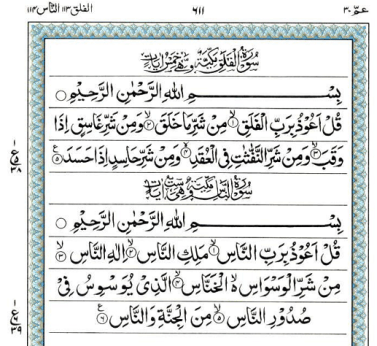 الفلق ١١٣ الناس ١١٤ ٦١١ عم ٣٠
سورة الفلق مكية وهي خمس آيات
بِسْمِ اللهِ الرَّحْمٰنِ الرَّحِيْمِ ○
قُلْ اَعُوْذُ بِرَبِّ الْفَلَقِ ۙ﴿١﴾ مِنْ شَرِّ مَا خَلَقَ ۙ﴿٢﴾ وَمِنْ شَرِّ غَاسِقٍ اِذَا
وَقَبَ ۙ﴿٣﴾ وَمِنْ شَرِّ النَّفّٰثٰتِ فِى الْعُقَدِ ۙ﴿٤﴾ وَمِنْ شَرِّ حَاسِدٍ اِذَا حَسَدَ ﴿٥﴾ ع
سورة الناس مكية وهي ست آيات
بِسْمِ اللهِ الرَّحْمٰنِ الرَّحِيْمِ ○
قُلْ اَعُوْذُ بِرَبِّ النَّاسِ ۙ﴿١﴾ مَلِكِ النَّاسِ ۙ﴿٢﴾ اِلٰهِ النَّاسِ ۙ﴿٣﴾
مِنْ شَرِّ الْوَسْوَاسِ ەۙ الْخَنَّاسِ ۙ﴿٤﴾ الَّذِىْ يُوَسْوِسُ فِىْ
صُدُوْرِ النَّاسِ ۙ﴿٥﴾ مِنَ الْجِنَّةِ وَالنَّاسِ ﴿٦﴾ ع